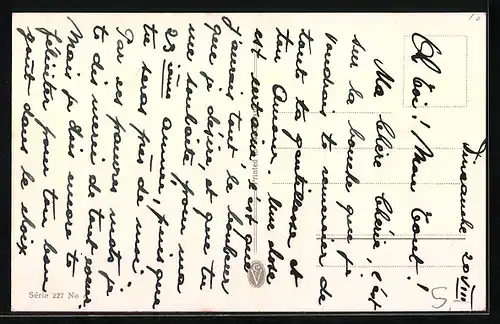 Dimanche 20 VIII
À toi! Mon Tout!
Ma Chère Chérie, c'est
sur la bouche que je
voudrais te remercier de
toute ta gentillesse et
ton Amour. Une chose
est certaine c'est que
j'aurais tout le bonheur
que je désire, et que tu
me souhaite pour ma
23 ième année, puis que
tu seras près de moi.
Par ses pauvres mots je
te dis merci de tout coeur.
Mais je dois encore te
féliciter pour ton bon
goût dans le choix
Printed
Série 227 No